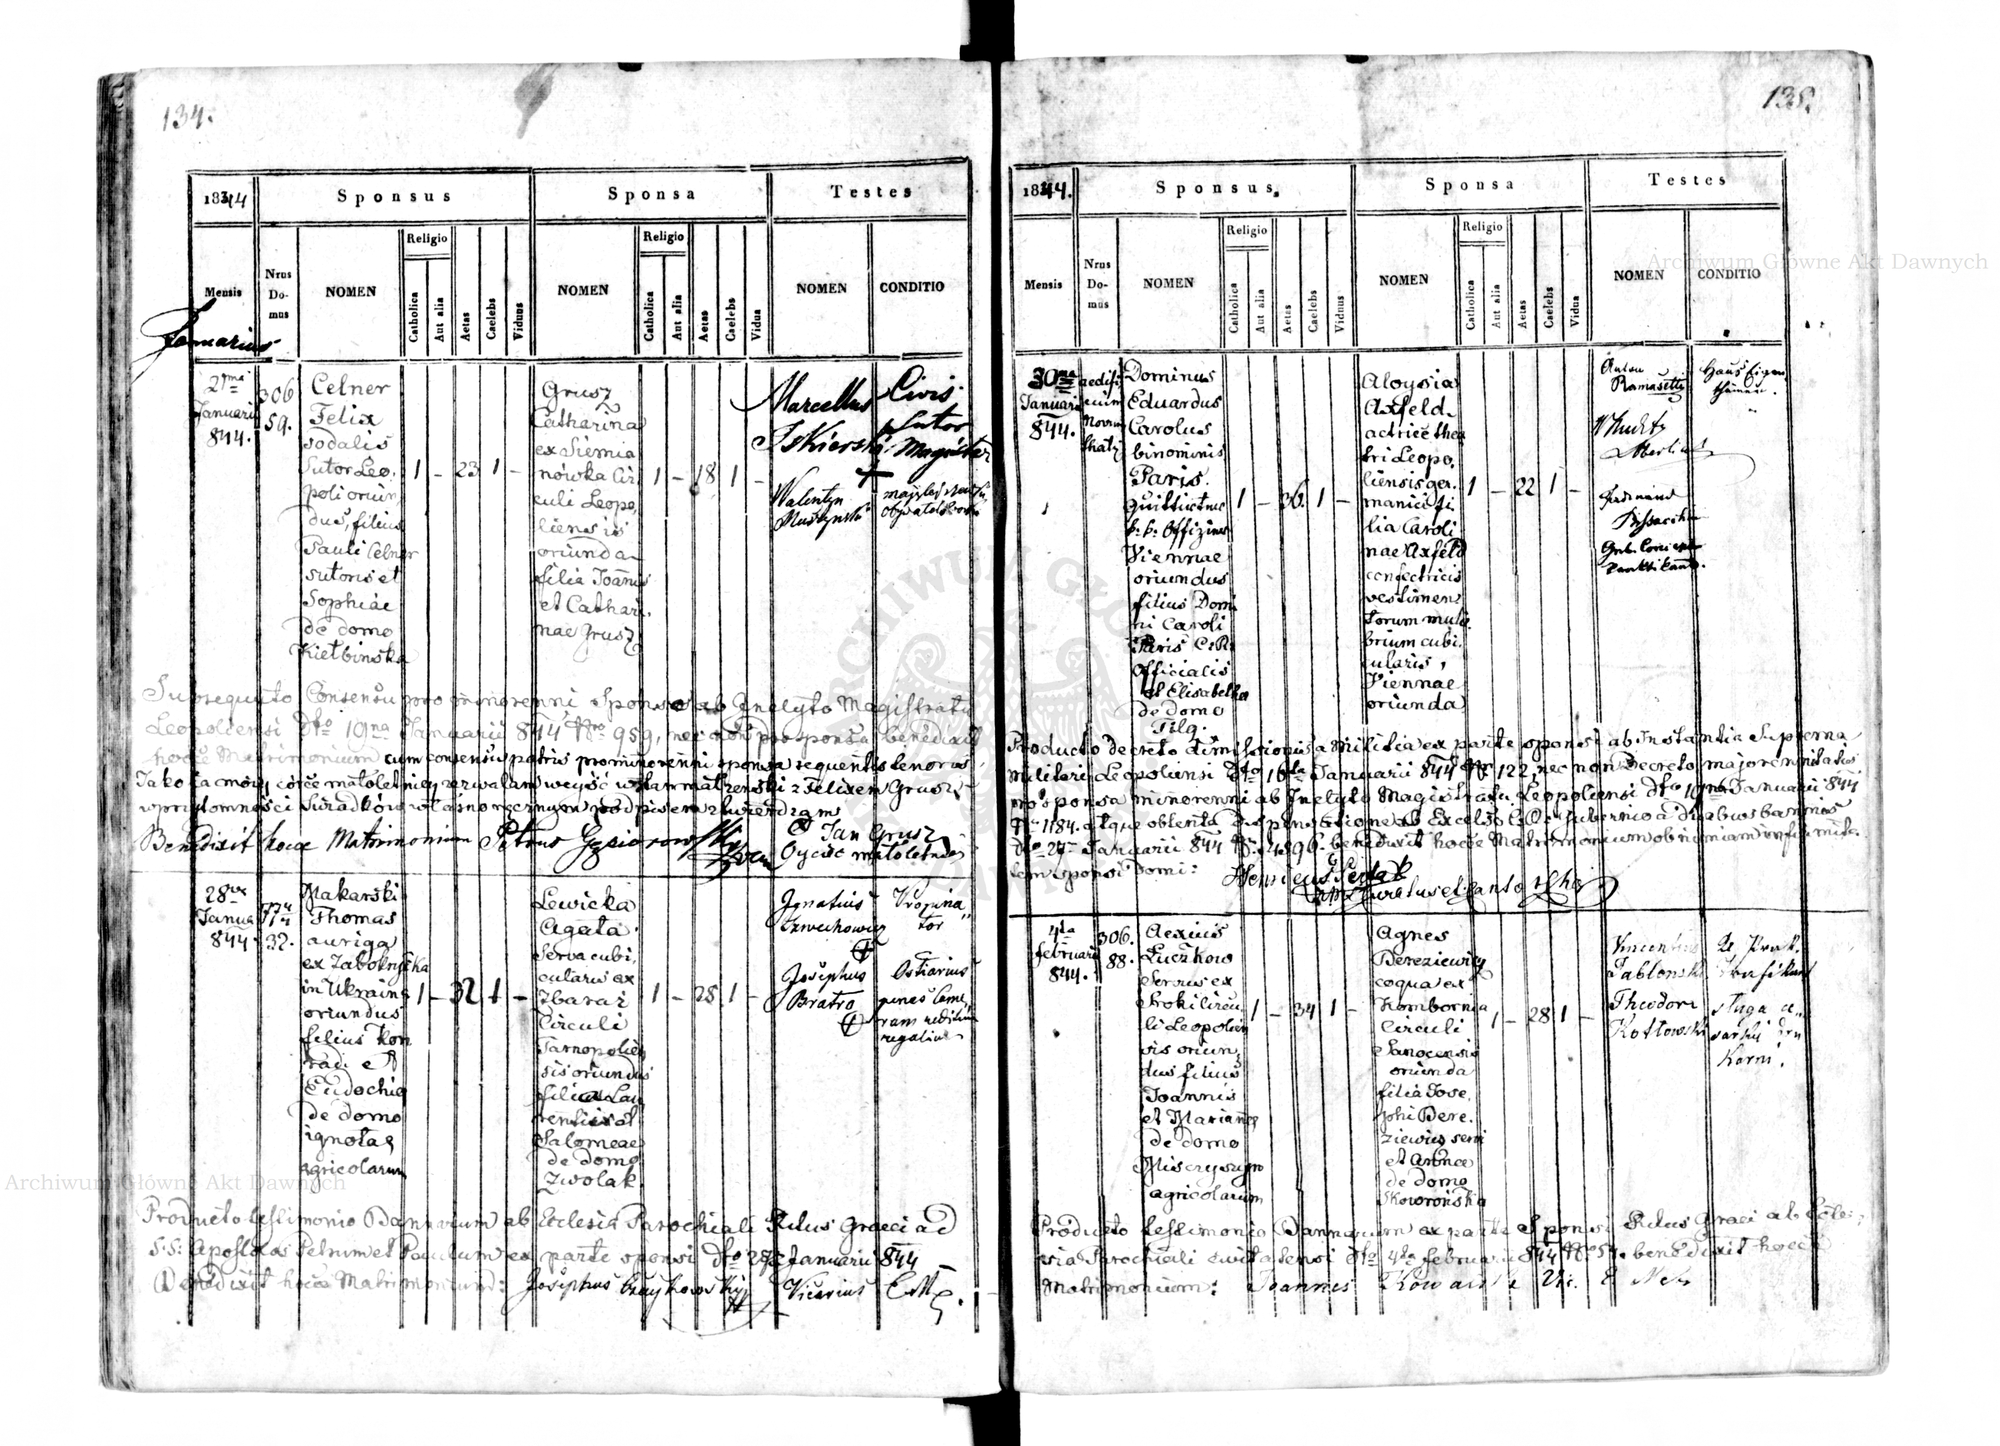 134.
1844
Sponsus
Sponsa
Testes
Mensis
Nrus Do- mus
NOMEN
Religio
Catholica
Aut alia
Aetas
Caelebs
Viduus
NOMEN
Religio
Catholica
Aut alia
Aetas
Caelebs
Vidua
NOMEN
CONDITIO
Januarius
27ma
Januarii
844.
306
59.
Celner
Felix
sodalis
Sutor Leo-
poli oriun-
dus, filius
Pauli Celner
sutoris et
Sophiae
de domo
Kiełbinska
1 - 23 1 -
Grusz
Catharina
ex Siemia
nówka Cir
culi Leopo
liensis
oriunda
filia Joannis
et Cathari.
nae Grusz
1 - 18 1 -
Marcellus
Iskierski
Civis
Sutor
Magister
Walentyn
Subsequuto Consensu pro minorenni Sponso ab Inclyto Magistratu
Leopoliensi dto 19na Januarii 844 Nro 959, nec non pro sponsa benedixit
hocce Matrimonium cum consensu patris pro minorenni sponsa sequentis tenoris
Jako ja moiey córce małoletniey zezwalam weyść w stan małżenski z Felixem
w przytomności Swiadków własnoręcznym podpisem ztwierdzam
Jan Grusz
Benedixit hocce Matrimonium Petrus Gąsiorowski
Oyciec małoletniey
28va
Janua
844.
32.
Makarski
Thomas
auriga
in Ukraina
oriundus
filius Kon
radi et
Eudochia
de domo
ignota
agricolarum
1 - 32 1 -
Lewicka
Agata
Serva cubi
cularis ex
Zbaraż
Circuli
Tarnopolien
sis oriundus
filia Lau
rentii et
Salomeae
de domo
Zwolak.
1 - 25 1 -
Ignatius
Propina
tor
Josephus
Bratro
Ostiarius
penes Came
ram reddituum
regalium
Producto testimonio Bannorum ab Ecclesia Parochiali Ritus Graeci ad
S.S: Apostolos Petrum et Paulum ex parte sponsi dto 28 Januarii 844
Benedixit hocce Matrimonium: Josephus Czaykowski Vicarius
135.
1844.
Sponsus
Sponsa
Testes
Mensis
Nrus Do- mus
NOMEN
Religio
Catholica
Aut alia
Aetas
Caelebs
Viduus
NOMEN
Religio
Catholica
Aut alia
Aetas
Caelebs
Vidua
NOMEN
CONDITIO
30ma
Januarii
844.
aedifi
cium
Dominus
Eduardus
Carolus
binominis
Paris.
quittirter
k. k. Offizier
Viennae
oriundus
filius Domi
ni Caroli
Paris C. R.
Officialis
et Elisabetha
de domo
Filg.
1 - 36. 1 -
Aloysia
Axfeld
actrice thea
tri Leopo.
liensis ger.
manici fi
lia Caroli
nae Axfeld
confectricis
vestimen
torum muli
brium cubi.
cularis,
Viennae
oriunda
1 - 22 1 -
Anton
Ramasetti
Haus Eigen
thümer.
Ferdinand
Gub. Concepts
Praktikant.
Producto decreto dimissionis a Militia ex parte sponsi ab Instantia Suprema
Militari Leopoliensi dto 16ta Januarii 844 Nr 122, nec non Decreto majorennitatis
pro sponsa minorenni ab Inclyto Magistratu Leopoliensi dto 19na Januarii 844
Nro 1184. atque obtenta dispensatione ab Excelso C. R. Gubernio a duabus bannis
dto 27 Januarii 844 Nr. 4896. benedixit hocce Matrimonium ob nimiam infirmita-
tem sponsi domi: Henricus
4ta
februarii
844.
306.
88.
Alexius
Łuczkow
Servus ex
Stroki Circu
li Leopolien
sis oriun
dus filius
Joannis
et Marianne
de domo
agricolarum
1 - 34 1 -
Agnes
Bereziewicz
coqua ex
Kombornia
Circuli
Sanocensis
oriunda
filia Jose.
phi Bere.
ziewicz servi
et Annae
de domo
Skowrońska
1 - 28 1 -
Vincentius
Jabłonski
Theodor
Kotłowski
sługa ce
sarski
Producto testimonio Bannorum ex parte Sponsi Ritus Graeci ab Eccle-
sia Parochiali dto 4ta februarii 844 Nro 54. benedixit hocce
Matrimonium: Joannes
Archiwum Główne Akt Dawnych
Archiwum Główne Akt Dawnych